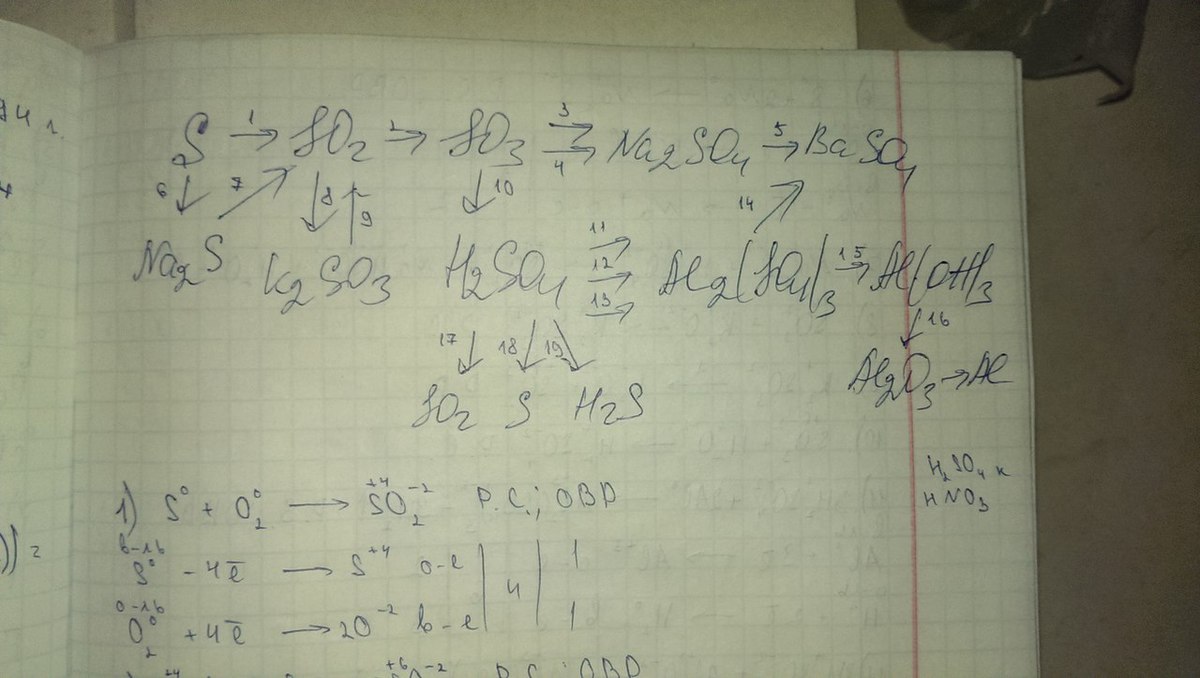 S 1→ SO₂ 2→ SO₃ 3→ 4→ Na₂SO₄ 5→ BaSO₄
6↓ 7↗ ↓8 ↑9 ↓10 14↗
Na₂S K₂SO₃ H₂SO₄ 11→ 12→ 13→ Al₂(SO₄)₃ 15→ Al(OH)₃
17↓ 18↓ 19↘ ↓16
Al₂O₃ → Al
SO₂ S H₂S
H₂SO₄ к
HNO₃
1) S⁰ + O₂⁰ ⟶ S⁺⁴O₂⁻² Р.С.; ОВР
в-ль
S⁰ - 4ē ⟶ S⁺⁴ о-е | 4 | 1
о-ль
O₂⁰ + 4ē ⟶ 2O⁻² в-е | 1
+4 +6 -2 Р.С.; ОВР
94 г.